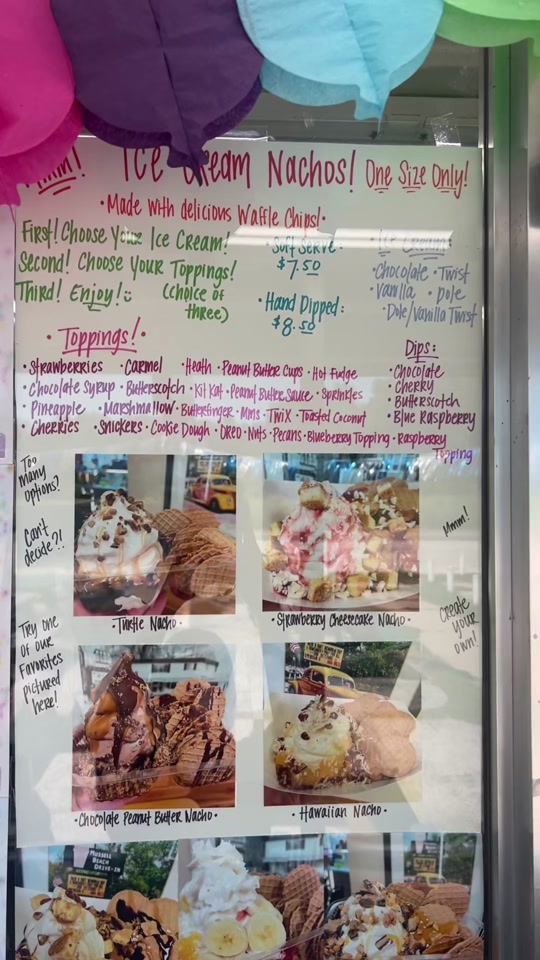 Ice Cream Nachos! One Size Only!
•Made with delicious Waffle Chips!•
First! Choose Your Ice Cream!
Second! Choose Your Toppings!
Third! Enjoy!
(choice of three)
•Soft Serve:
$7.50
•Hand Dipped:
$8.50
Ice Cream:
•Chocolate •Twist
•Vanilla •Dole
•Dole/Vanilla Twist
•Toppings!•
•Strawberries •Carmel •Heath •Peanut Butter Cups •Hot Fudge
•Chocolate Syrup •Butterscotch •Kit Kat •Peanut Butter Sauce •Sprinkles
•Pineapple •Marshmallow •Butterfinger •Mms •Twix •Toasted Coconut
•Cherries •Snickers •Cookie Dough •Oreo •Nuts •Pecans •Blueberry Topping •Raspberry Topping
Dips:
•Chocolate
•Cherry
•Butterscotch
•Blue Raspberry
Too many options?
Can't decide?!
Try one of our favorites pictured here!
Mmm!
Create your own!
•Turtle Nacho•
•Strawberry Cheesecake Nacho•
•Chocolate Peanut Butter Nacho•
•Hawaiian Nacho•
MUSSELL
BEACH
DRIVE-IN